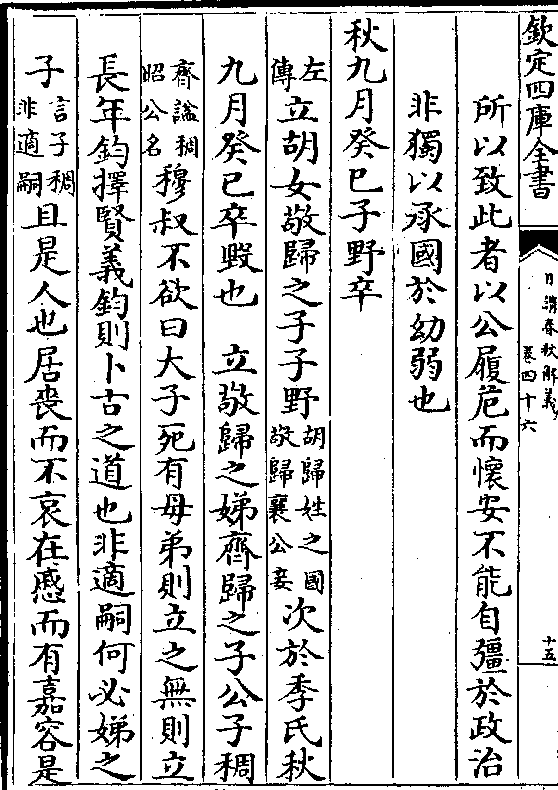 欽定四庫全書
日講春秋解義
卷四十六
十五
所以致此者以公履危而懷安不能自彊於政治
非獨以承國於幼弱也
秋九月癸巳子野卒
左傳立胡女敬歸之子子野胡歸姓之國敬歸襄公妾次於季氏秋
九月癸巳卒毀也　立敬歸之娣齊歸之子公子裯
齊諡裯昭公名穆叔不欲曰大子死有母弟則立之無則立
長年鈞擇賢義鈞則卜古之道也非適嗣何必娣之
子言子裯非適嗣且是人也居喪而不哀在慼而有嘉容是